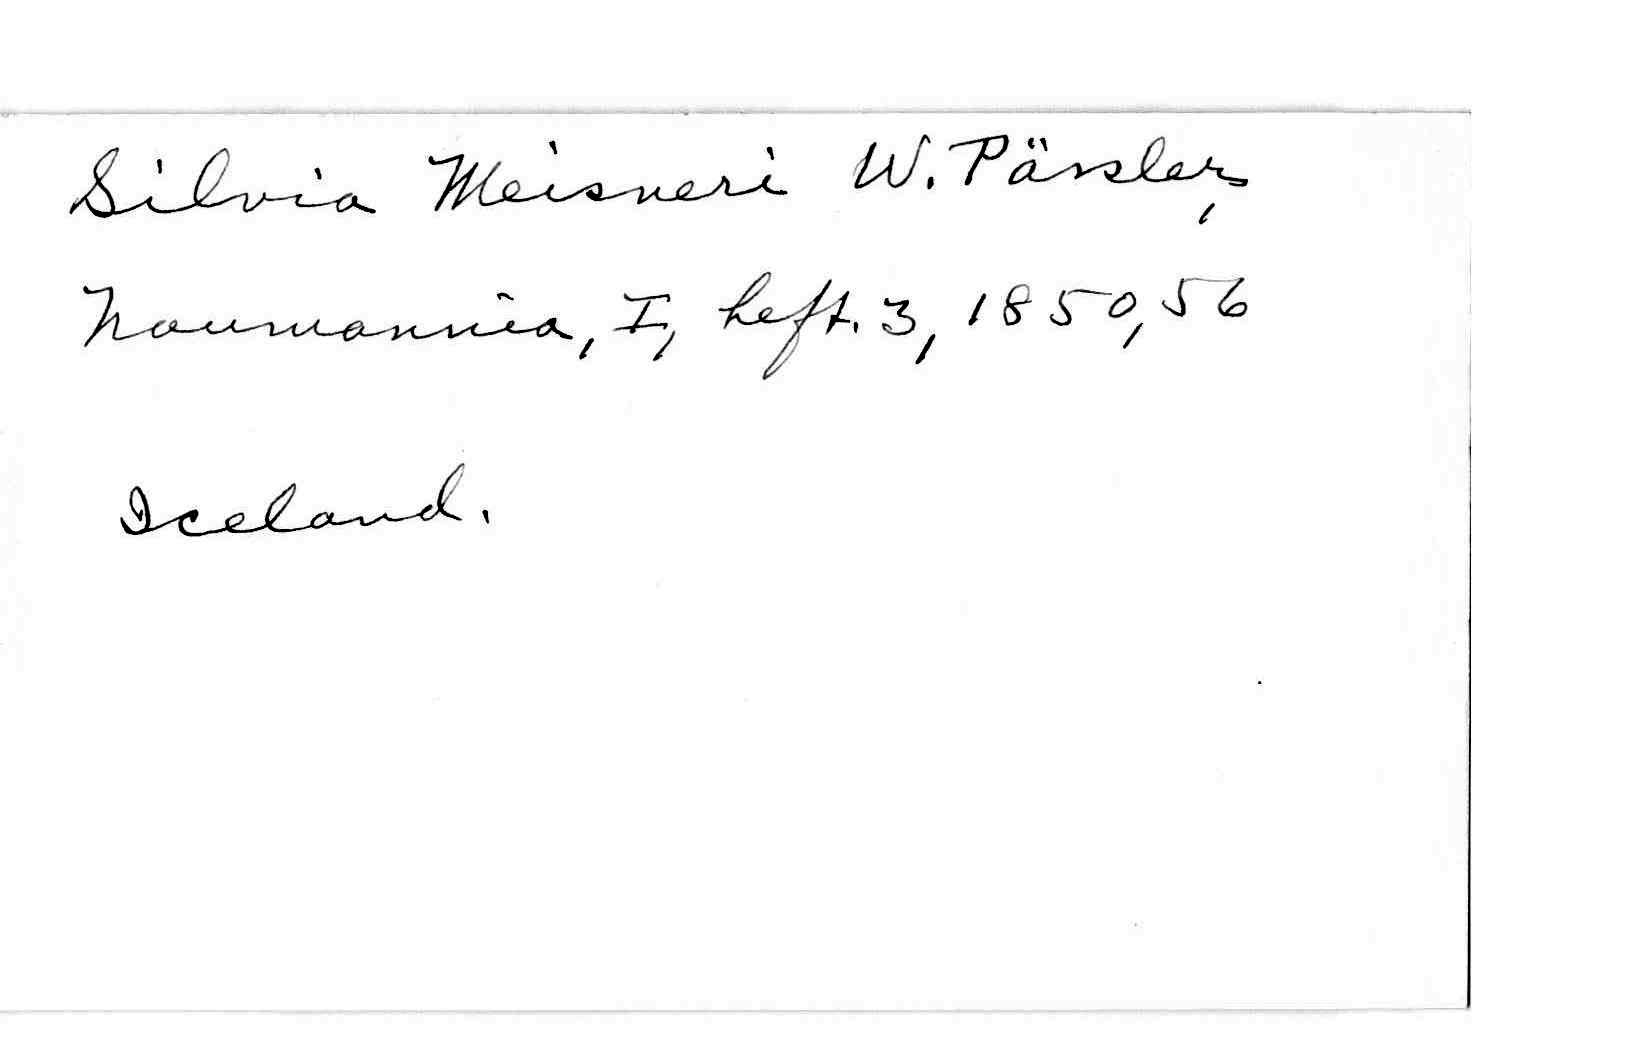 Silvia Meisneri W. Pässler,
Naumannia, I, heft. 3, 1850, 56
Iceland.